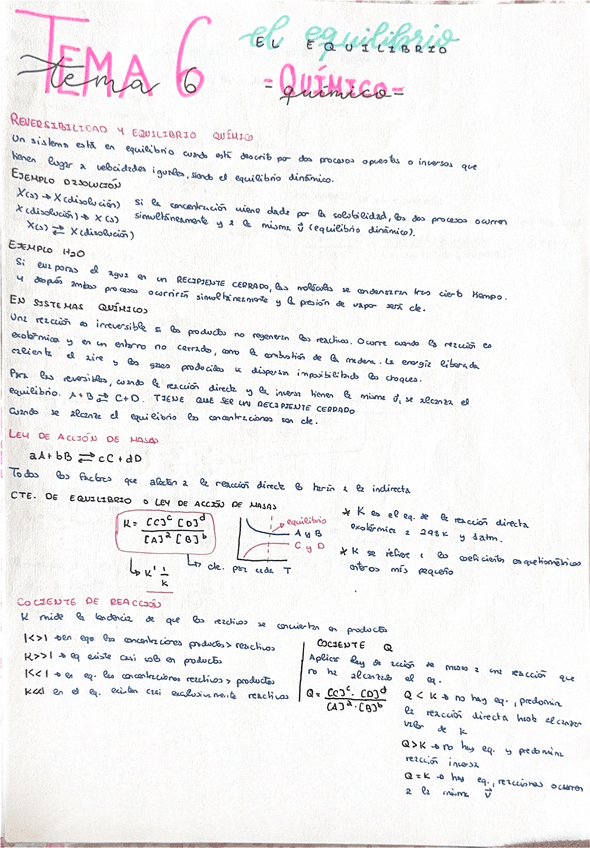 TEMA 6
tema 6
el equilibrio
EL EQUILIBRIO
=QUÍMICO=
químico
REVERSIBILIDAD Y EQUILIBRIO QUÍMICO
Un sistema está en equilibrio cuando está descrito por dos procesos opuestos o inversos que
tienen lugar a velocidades iguales, siendo el equilibrio dinámico.
EJEMPLO DISOLUCIÓN
X(s) → X(disolución) Si la concentración viene dada por la solubilidad, los dos procesos ocurren
X(disolución) → X(s) simultáneamente y a la misma v⃗ (equilibrio dinámico).
X(s) ⇄ X(disolución)
EJEMPLO H2O
Si evaporas el agua en un RECIPIENTE CERRADO, las moléculas se condensarán tras cierto tiempo.
y después ambos procesos ocurrirán simultáneamente y la presión de vapor será cte.
EN SISTEMAS QUÍMICOS
Una reacción es irreversible si los productos no regeneran los reactivos. Ocurre cuando la reacción es
exotérmica y en un entorno no cerrado, como la combustión de la madera. La energía liberada
calienta el aire y los gases producidos se dispersan imposibilitando los choques.
Para las reversibles, cuando la reacción directa y la inversa tienen la misma v⃗, se alcanza el
equilibrio. A+B ⇄ C+D. TIENE QUE SER UN RECIPIENTE CERRADO
Cuando se alcanza el equilibrio las concentraciones son cte.
LEY DE ACCIÓN DE MASAS
aA+bB ⇄ cC+dD
Todos los factores que afecten a la reacción directa lo harán a la indirecta
CTE. DE EQUILIBRIO O LEY DE ACCIÓN DE MASAS
K = [C]^c [D]^d / [A]^a [B]^b
equilibrio
A y B
C y D
↳ K' 1/K
↳ cte. por cada T
* K es el eq. de la reacción directa
exotérmica a 298K y 1atm.
* K se refiere a los coeficientes estequiométricos
enteros más pequeño
COCIENTE DE REACCIÓN
K mide la tendencia de que los reactivos se conviertan en productos
K>1 → en eq. las concentraciones productos > reactivos
K>>1 → eq existe casi solo en productos
K<1 → en eq. las concentraciones reactivos > productos
K<<1 en el eq. existen casi exclusivamente reactivos
COCIENTE Q
Aplicar ley de acción de masas a una reacción que
no ha alcanzado el eq.
Q = [C]^c · [D]^d / [A]^a · [B]^b
Q < K → no hay eq., predomina
la reacción directa hasta alcanzar
valor de K
Q>K → no hay eq. y predomina
reacción inversa
Q=K → hay eq., reacciones ocurren
a la misma v⃗